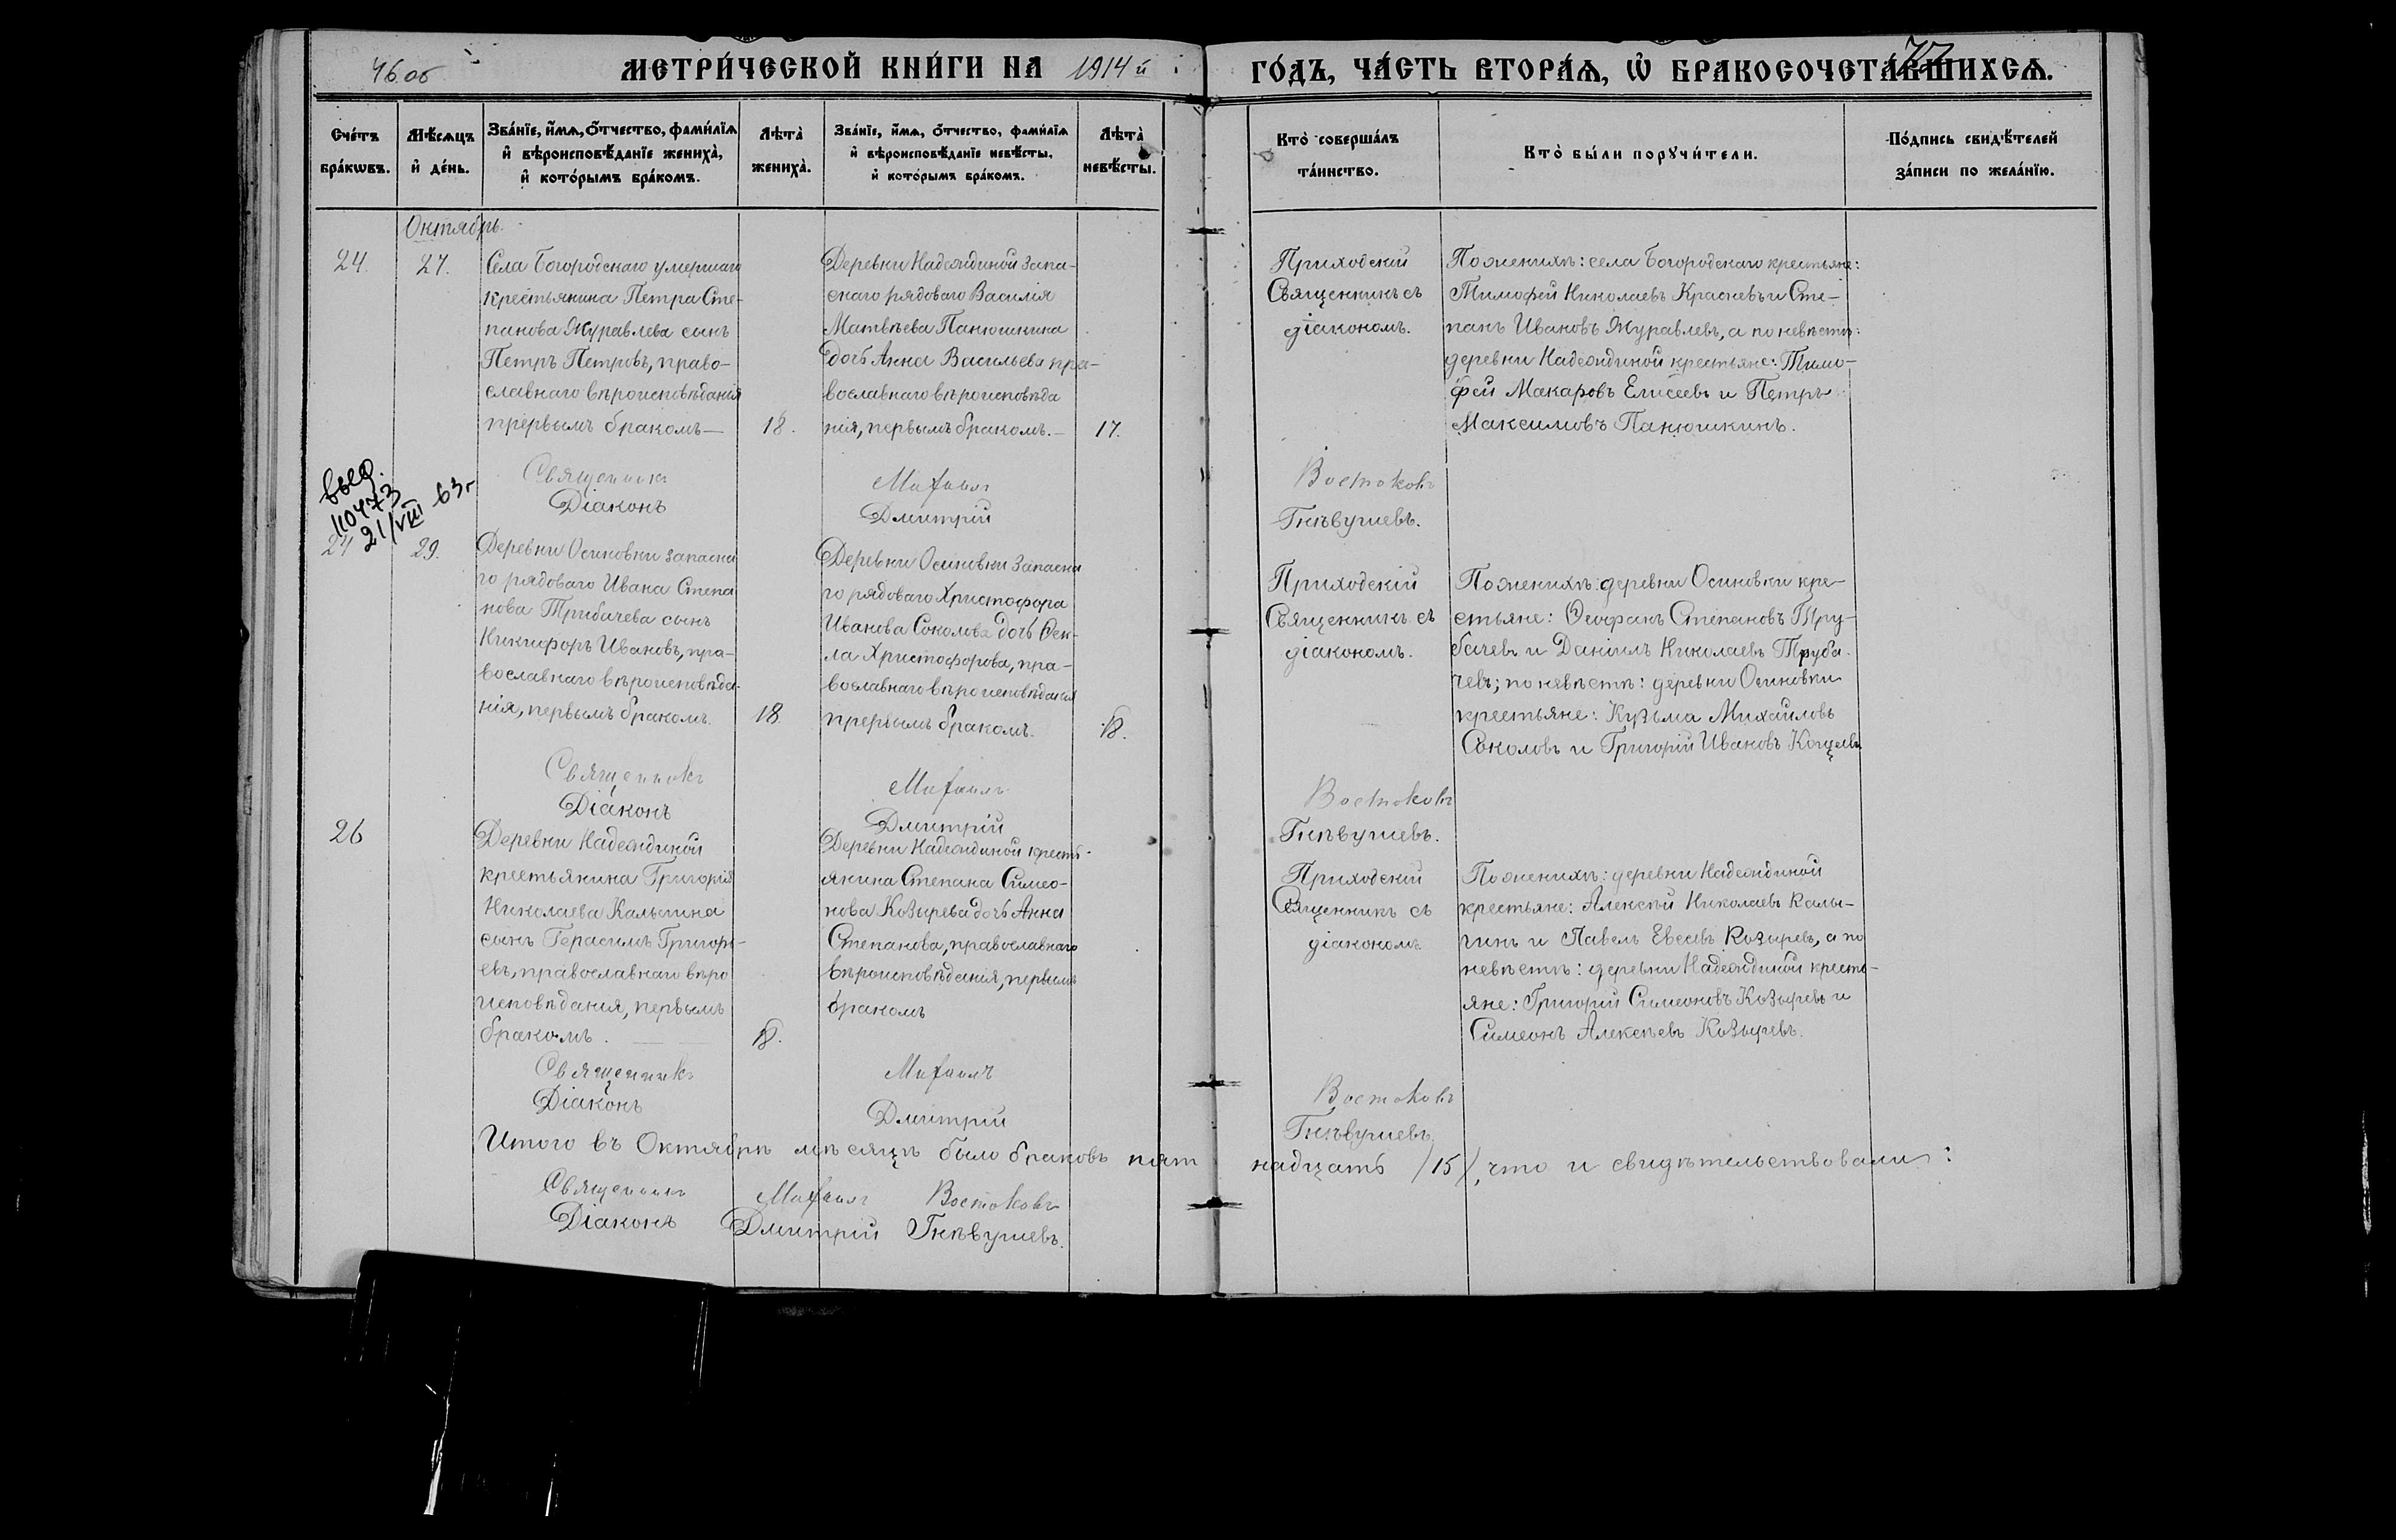 46 об
МЕТРИ́ЧЕСКОЙ КНИ́ГИ НА 1914 й
ГО́ДЪ, ЧА́СТЬ ВТОРА́Ѧ, Ѡ҆ БРАКОСОЧЕТА́ВШИХСѦ.
Сче́тъ
бра́кѡвъ.
Мѣ́сѧцъ
и҆ де́нь.
Зва́нїе, и҆́мѧ, ѻ҆́тчество, фами́лїѧ
и҆ вѣроисповѣ́данїе жениха̀,
и҆ кото́рымъ бра́комъ.
Лѣ́та
жениха̀.
Зва́нїе, и҆́мѧ, ѻ҆́тчество, фами́лїѧ
и҆ вѣроисповѣ́данїе невѣ́сты,
и҆ кото́рымъ бра́комъ.
Лѣ́та
невѣ́сты.
Кто̀ соверша́лъ
та́инство.
Кто̀ бы́ли порꙋчи́тели.
По́дпись свидѣ́телей
за́писи по жела́нїю.
Октябрь.
24.
27.
Села Богородскаго умершаго
крестьянина Петра Сте-
панова Журавлева сынъ
Петръ Петровъ, право-
славнаго вѣроисповѣданія
прервымъ бракомъ—
18.
Деревни Надеждиной запа-
снаго рядоваго Василія
Матвѣева Панюшкина
дочь Анна Васильева пра-
вославнаго вѣроисповѣда
нія, первымъ бракомъ.—
17.
Приходскій
Священникъ съ
діакономъ.
По женихѣ: села Богородскаго крестьяне:
Тимофей Николаевъ Красневъ и Сте-
панъ Ивановъ Журавлевъ, а по невѣстѣ:
деревни Надеждиной крестьяне: Тимо-
фей Макаровъ Елисеевъ и Петръ
Максимовъ Панюшкинъ.
Священникъ Михаилъ Востоковъ
Діаконъ Дмитрій Гнѣвушевъ.
выд.
110473
21/VIII 63 г
24
29.
Деревни Осиновки запасна
го рядоваго Ивана Степа
нова Трибачева сынъ
Никифоръ Ивановъ, пра-
вославнаго вѣроисповѣда-
нія, первымъ бракомъ.
18.
Деревни Осиновки запасна
го рядоваго Христофора
Иванова Соколова дочь Ѳек-
ла Христофорова, пра-
вославнаго вѣроисповѣданія
прервымъ бракомъ.
18.
Приходскій
Священникъ съ
діакономъ.
По женихѣ: деревни Осиновки кре-
стьяне: Ѳеофанъ Степановъ Тру-
бачевъ и Даніилъ Николаевъ Труба-
чевъ; по невѣстѣ: деревни Осиновки
крестьяне: Кузьма Михайловъ
Соколовъ и Григорій Ивановъ
Священникъ Михаилъ Востоковъ
Діаконъ Дмитрій Гнѣвушевъ.
26
Деревни Надеждиной
крестьянина Григорія
Николаева Калыгина
сынъ Герасимъ Григорь-
евъ, православнаго вѣро
исповѣданія, первымъ
бракомъ.
18.
Деревни Надеждиной кресть-
янина Степана Симео-
нова Козырева дочь Анна
Степанова, православнаго
вѣроисповѣданія, первымъ
бракомъ
Приходскій
Священникъ съ
діакономъ
По женихѣ: деревни Надеждиной
крестьяне: Алексѣй Николаевъ Калы-
гинъ и Павелъ Евсевъ Козыревъ, а по
невѣстѣ: деревни Надеждиной кресть-
яне: Григорій Симеоновъ Козыревъ и
Симеонъ Алексѣевъ Козыревъ.
Священникъ Михаилъ Востоковъ
Діаконъ Дмитрій Гнѣвушевъ.
Итого въ Октябрѣ мѣсяцѣ было браковъ пят надцать /15/, что и свидѣтельствовали:
Священникъ Михаилъ Востоковъ
Діаконъ Дмитрій Гнѣвушевъ.